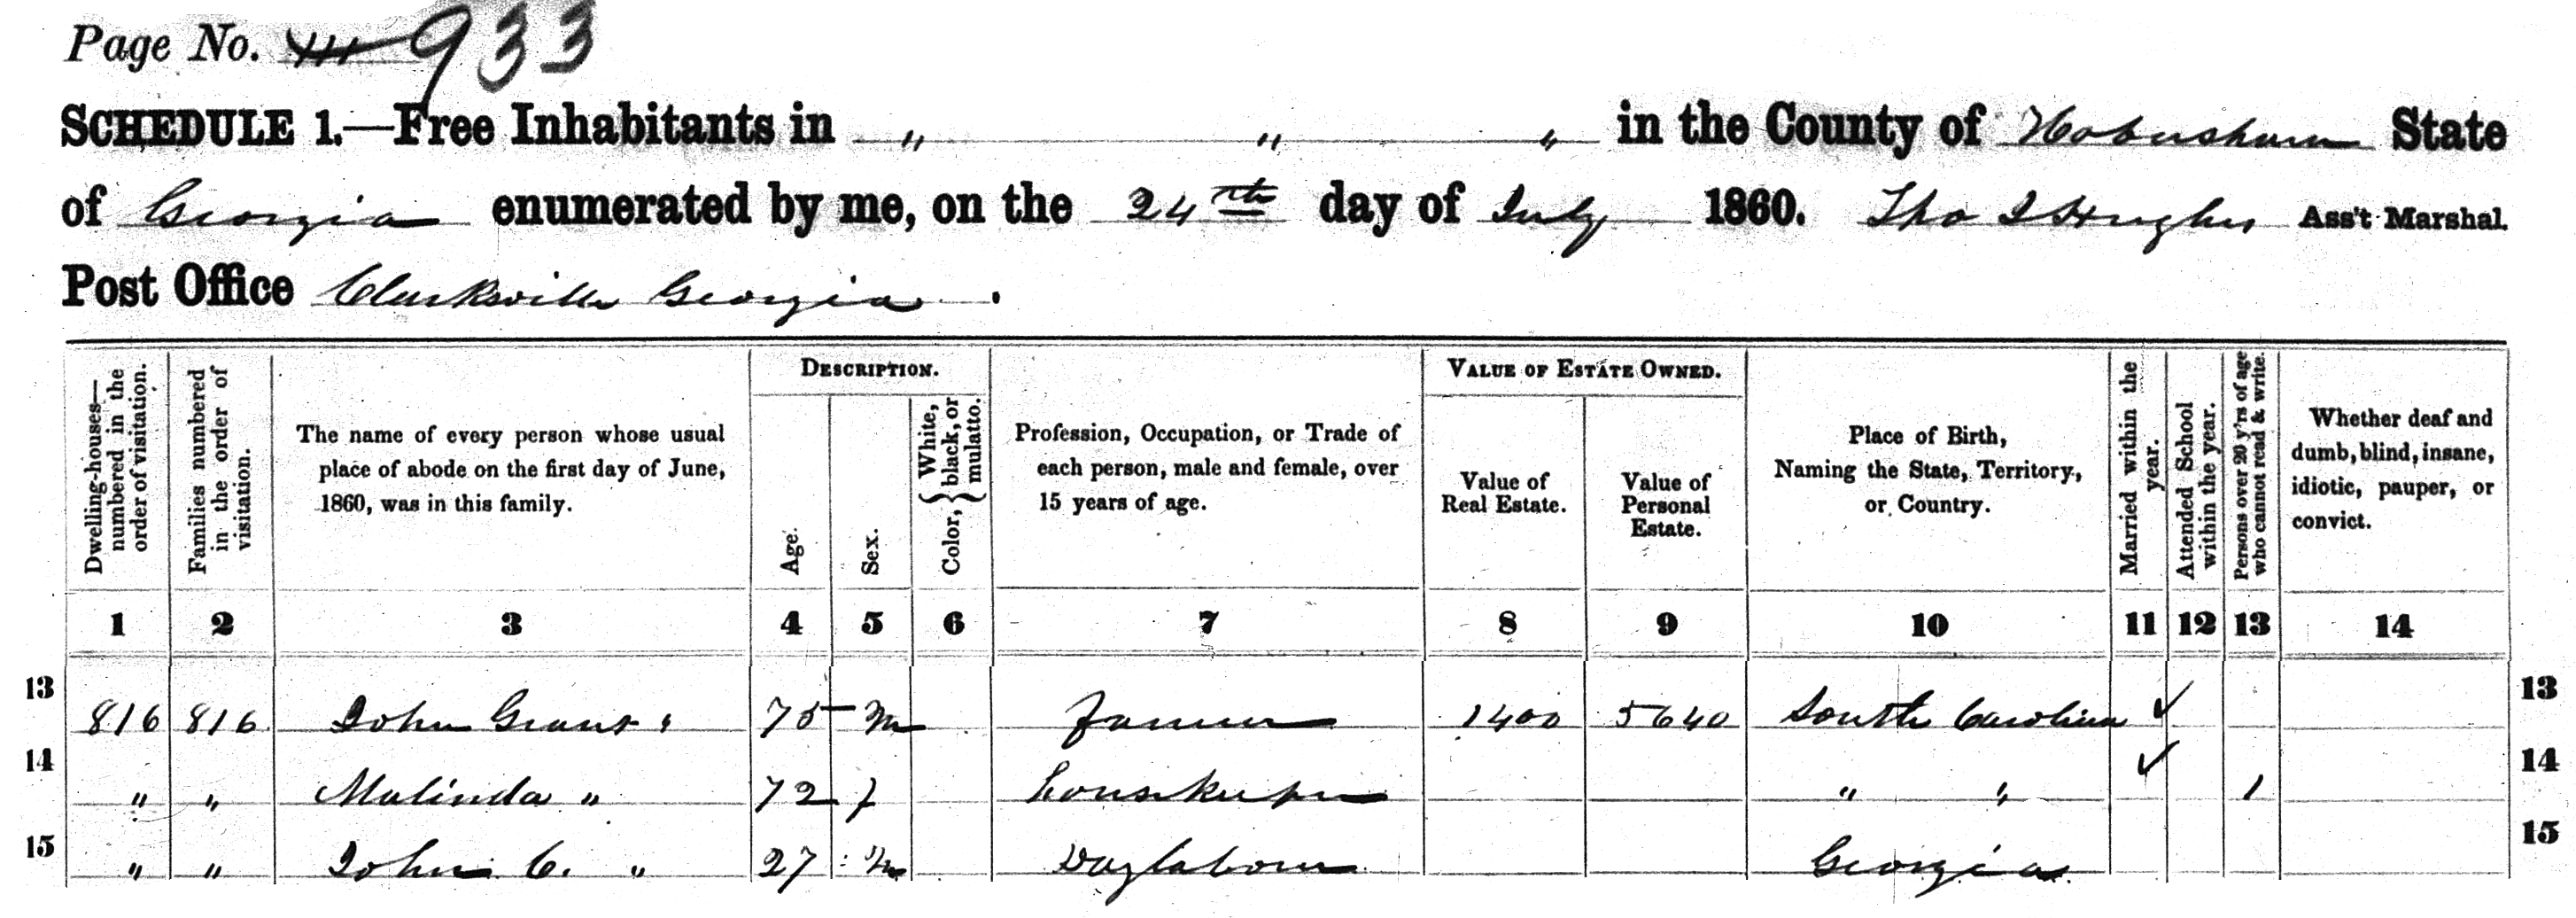 Page No. 933
SCHEDULE 1.—Free Inhabitants in " " " in the County of Habersham State
of Georgia enumerated by me, on the 24th day of July 1860. Tho J Hughes Ass't Marshal.
Post Office Clarksville Georgia.
DESCRIPTION. VALUE OF ESTATE OWNED.
Dwelling-houses—numbered in the order of visitation. Families numbered in the order of visitation. The name of every person whose usual place of abode on the first day of June, 1860, was in this family. Age. Sex. Color, { White, black, or mulatto. Profession, Occupation, or Trade of each person, male and female, over 15 years of age. Value of Real Estate. Value of Personal Estate. Place of Birth, Naming the State, Territory, or Country. Married within the year. Attended School within the year. Persons over 20 y'rs of age who cannot read & write. Whether deaf and dumb, blind, insane, idiotic, pauper, or convict.
1 2 3 4 5 6 7 8 9 10 11 12 13 14
13 816 816 John Grant " 75 m Farmer 1400 5640 South Carolina ✓ 13
14 " " Malinda " 72 f Housekeeper " " ✓ 1 14
15 " " John C. " 27 m Daylaborer Georgia 15